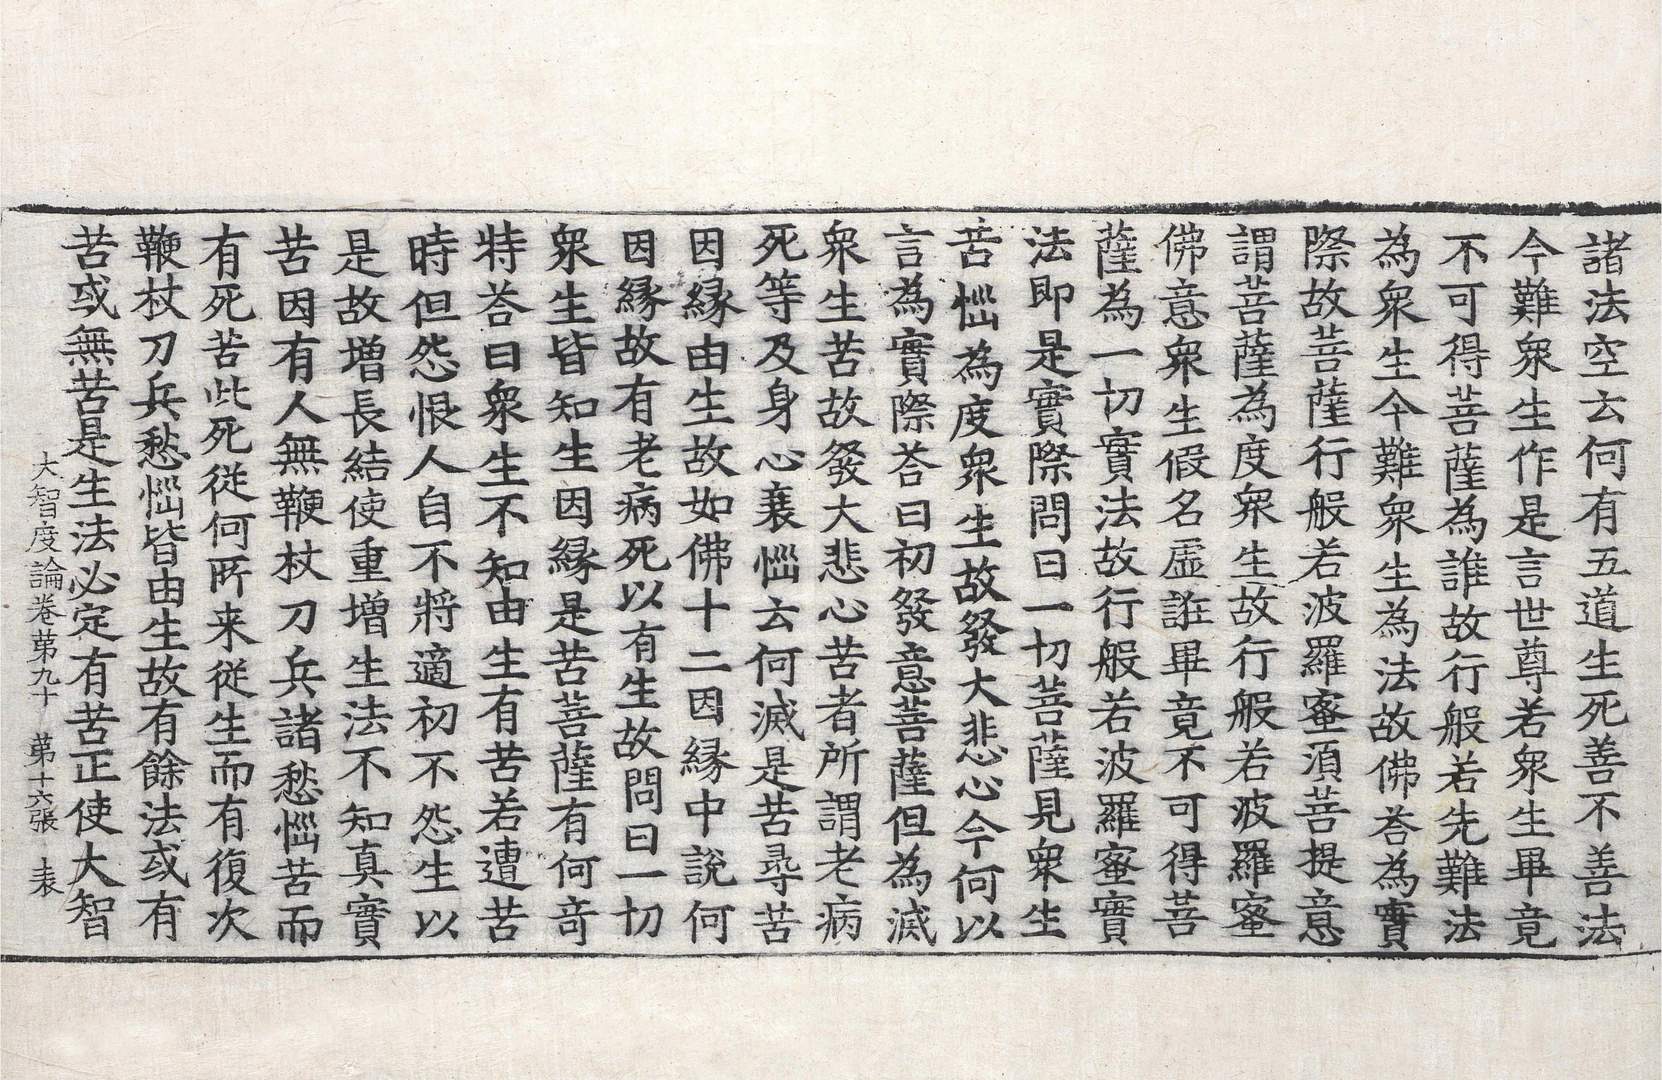 諸法空云何有五道生死善不善法
今難衆生作是言世尊若衆生畢竟
不可得菩薩為誰故行般若先難法
為衆生今難衆生為法故佛荅為實
際故菩薩行般若波羅蜜湏菩提意
謂菩薩為度衆生故行般若波羅蜜
佛意衆生假名虛誑畢竟不可得菩
薩為一切實法故行般若波羅蜜實
法即是實際問曰一切菩薩見衆生
苦惱為度衆生故發大悲心今何以
言為實際荅曰初發意菩薩但為滅
衆生苦故發大悲心苦者所謂老病
死等及身心衰惱云何滅是苦㝷苦
因緣由生故如佛十二因緣中說何
因緣故有老病死以有生故問曰一切
衆生皆知生因緣是苦菩薩有何竒
特荅曰衆生不知由生有苦若遭苦
時但怨恨人自不將適初不怨生以
是故增長結使重增生法不知真實
苦因有人無鞭杖刀兵諸愁惱苦而
有死苦此死從何所来從生而有復次
鞭杖刀兵愁惱皆由生故有餘法或有
苦或無苦是生法必定有苦正使大智
大智度論卷苐九十 苐十六張 表